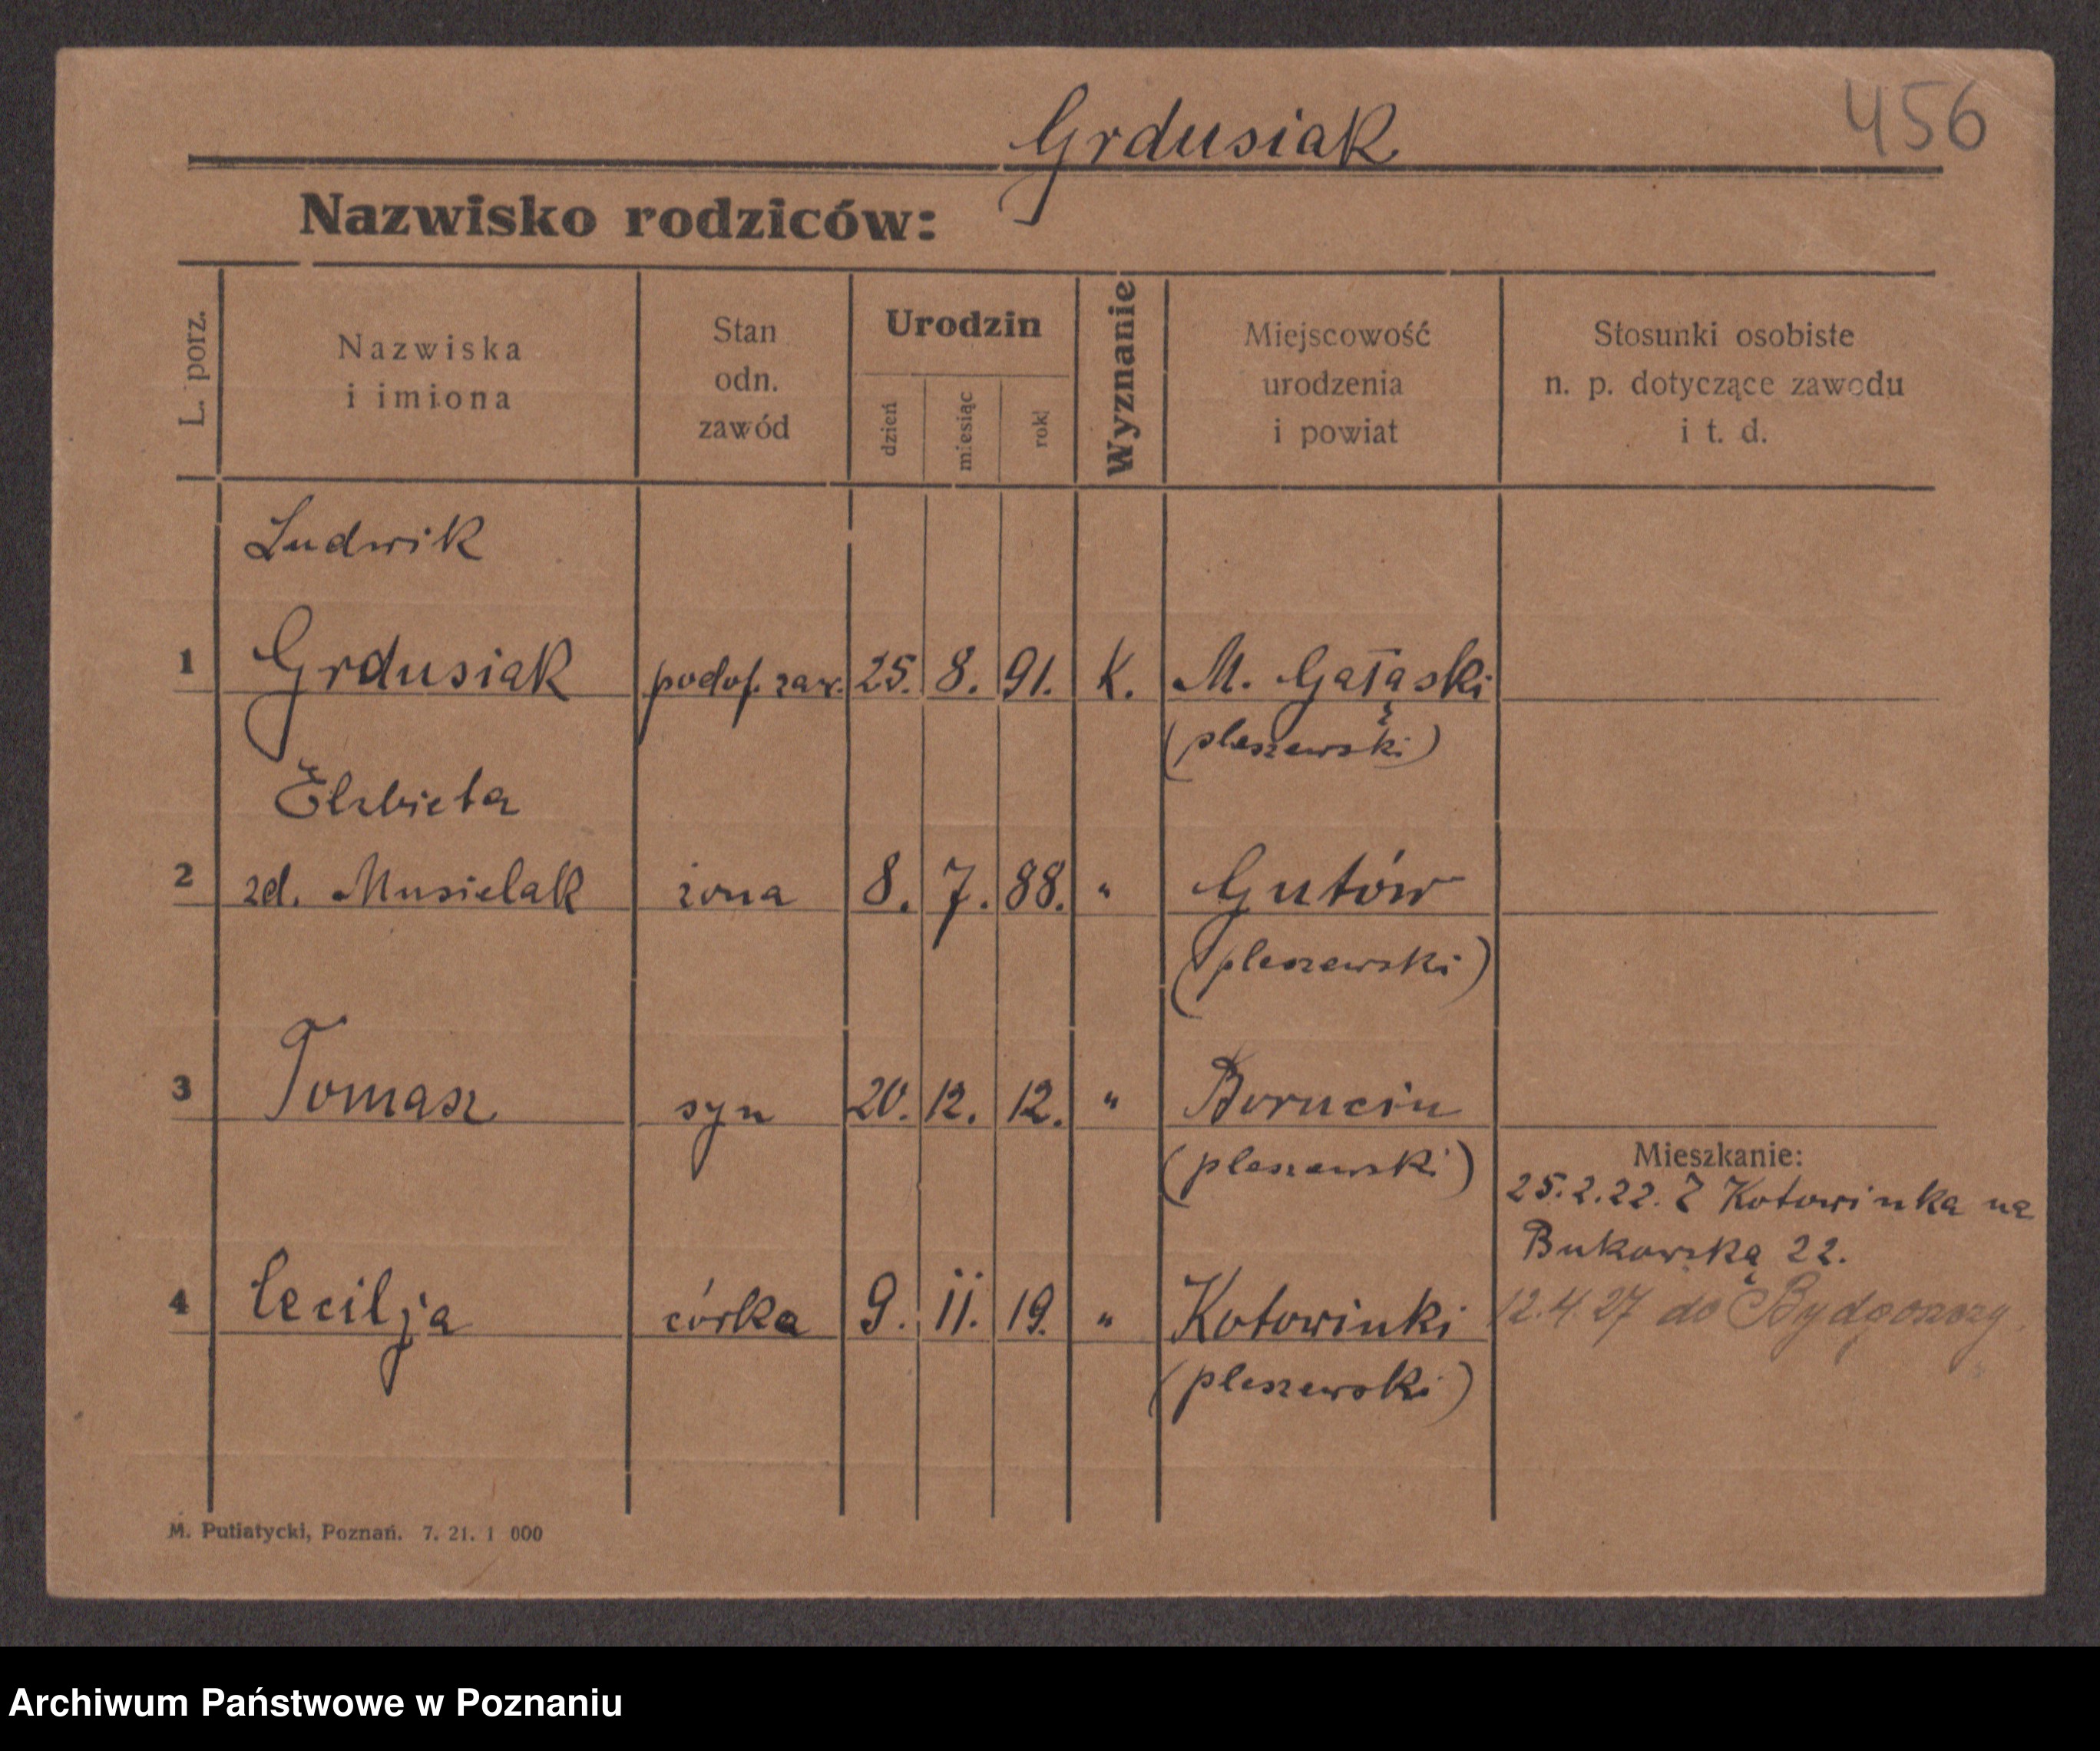 Grdusiak
456
Nazwisko rodziców:
L. porz.
Nazwiska
i imiona
Stan
odn.
zawód
Urodzin
dzień
miesiąc
rok
Wyznanie
Miejscowość
urodzenia
i powiat
Stosunki osobiste
n. p. dotyczące zawodu
i t. d.
Ludwik
1 Grdusiak podof. zaw. 25. 8. 91. K. M. Gałąski
(pleszewski)
Elżbieta
2 zd. Musielak żona 8. 7. 88. " Gutów
(pleszewski)
3 Tomasz syn 20. 12. 12. " Borucin
(pleszewski)
Mieszkanie:
25.2.22. Z Kotowinka na
Bukowską 22.
4 Cecilja córka 9. 11. 19. " Kotowinki
12.4.27 do Bydgoszczy
(pleszewski)
M. Putiatycki, Poznań. 7. 21. 1 000
Archiwum Państwowe w Poznaniu